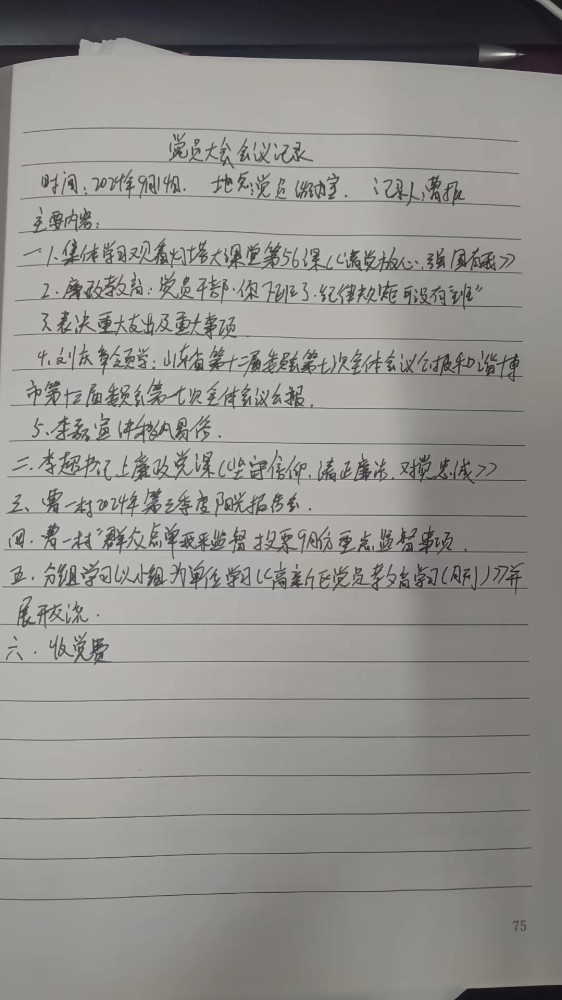 党员大会会议记录
时间：2024年9月14日． 地点：党员活动室． 记录人：曹振
主要内容：
一 1．集体学习观看灯塔大课堂第56课《请党放心、强国有我》
2．廉政教育：党员干部"你下班了．纪律规矩可没有下班"
3．表决重大支出及重大事项
4．刘庆 领学：山东省第十二届委员会第七次全体会议公报和淄博
市第十三届委员会第七次全体会议公报．
5．李磊宣讲移风易俗．
二．李超书记上廉政党课《坚守信仰．清正廉洁．对党忠诚》
三．曹一村2024年第三季度阳光报告会．
四．曹一村"群众点单我来监督投票9月份重点监督事项．
五．分组学习以小组为单位学习《高新区党员教育学习（月刊）》并
展开交流．
六．收党费
75